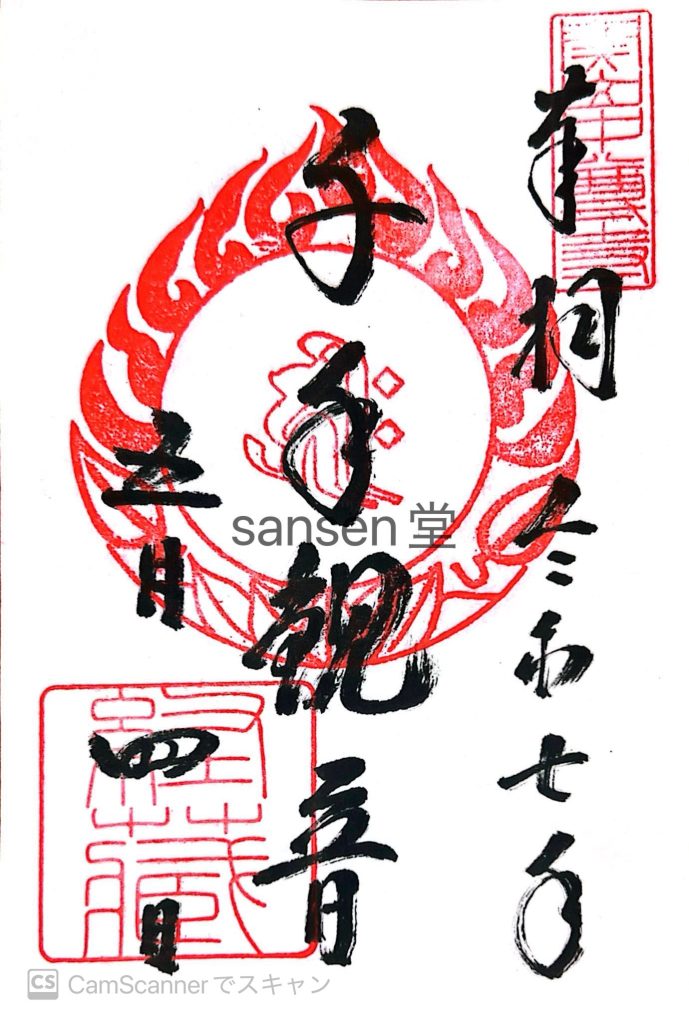 奉拝 令和七年
千手観音
五月四日
經藏
sansen堂
CS CamScannerでスキャン